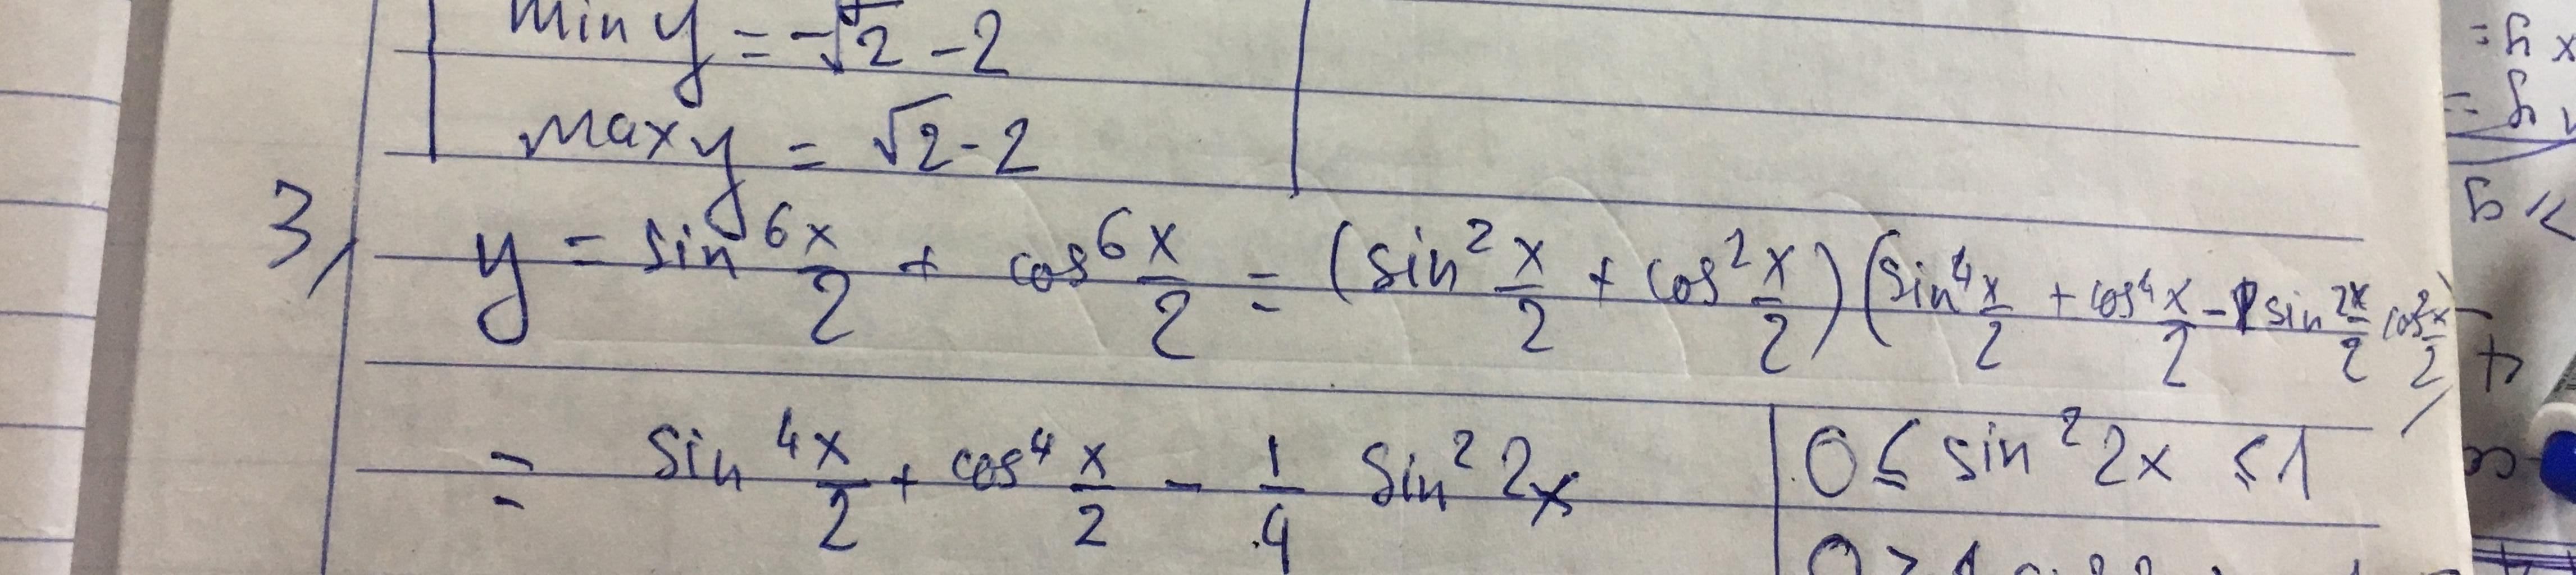 min y = -√2 - 2
max y = √2 - 2
3, y = sin⁶ x/2 + cos⁶ x/2 = (sin² x/2 + cos² x/2)(sin⁴ x/2 + cos⁴ x/2 - sin² x/2 cos² x/2)
= sin⁴ x/2 + cos⁴ x/2 - 1/4 sin² 2x
0 ≤ sin² 2x ≤ 1